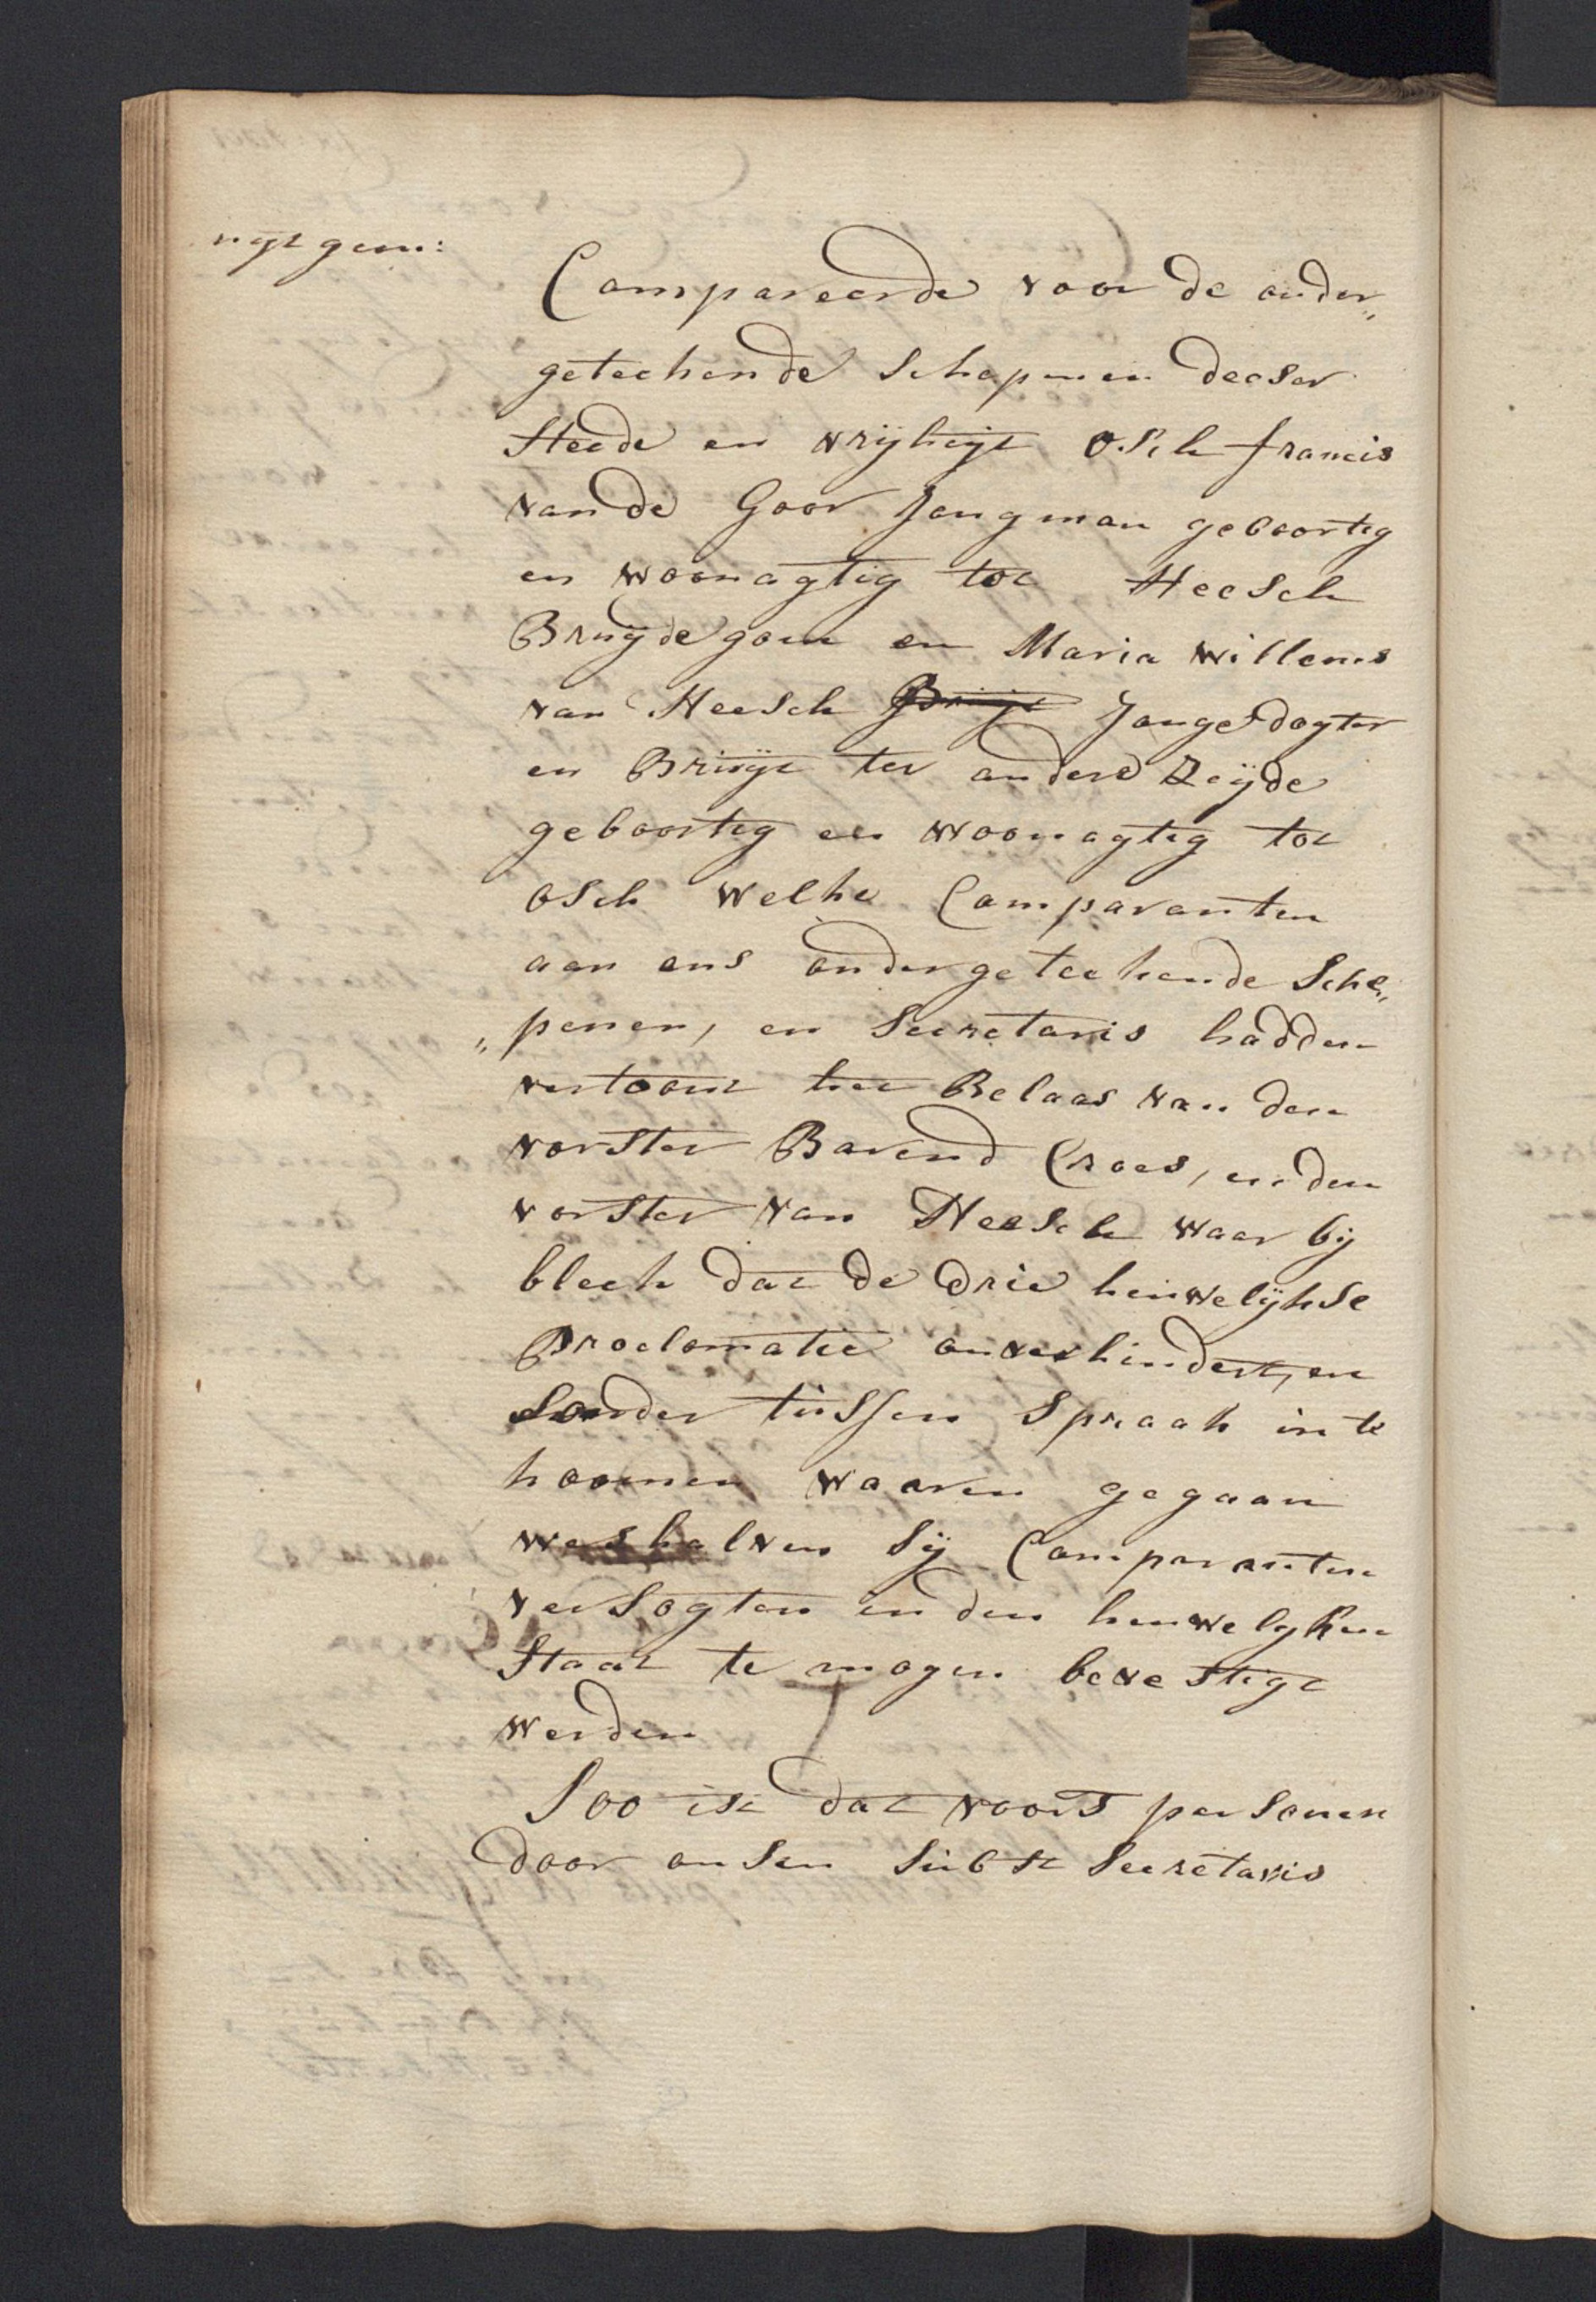 uyt gem:
Compareerde voor de onder„
geteekende Schepenen deeser
Steede en vrijheijt Osch francis
van de Goor Jongman geboortig
en woonagtig tot Heesch
Bruijdegom en Maria Willems
van Heesch Bruijt Jonge dogter
en Bruijt ter andere Zeijde
geboortig en woonagtig tot
Osch welke Comparanten
aan ons ondergeteekende Sche„
„penen, en Secretaris hadden
vertoont het Relaas van den
vorster Barend Croes, en den
vorster van Heesch waar bij
bleek dat de drie heuwelijkse
Proclamatie onverhindert, en
Sonder tussen Spraak in te
koomen waaren gegaan
weshalven Sij Comparanten
versogten in den heuwelijken
Staat te mogen bevestigt
werden
Soo ist dat voors personen
door onsen Subst Secretaris